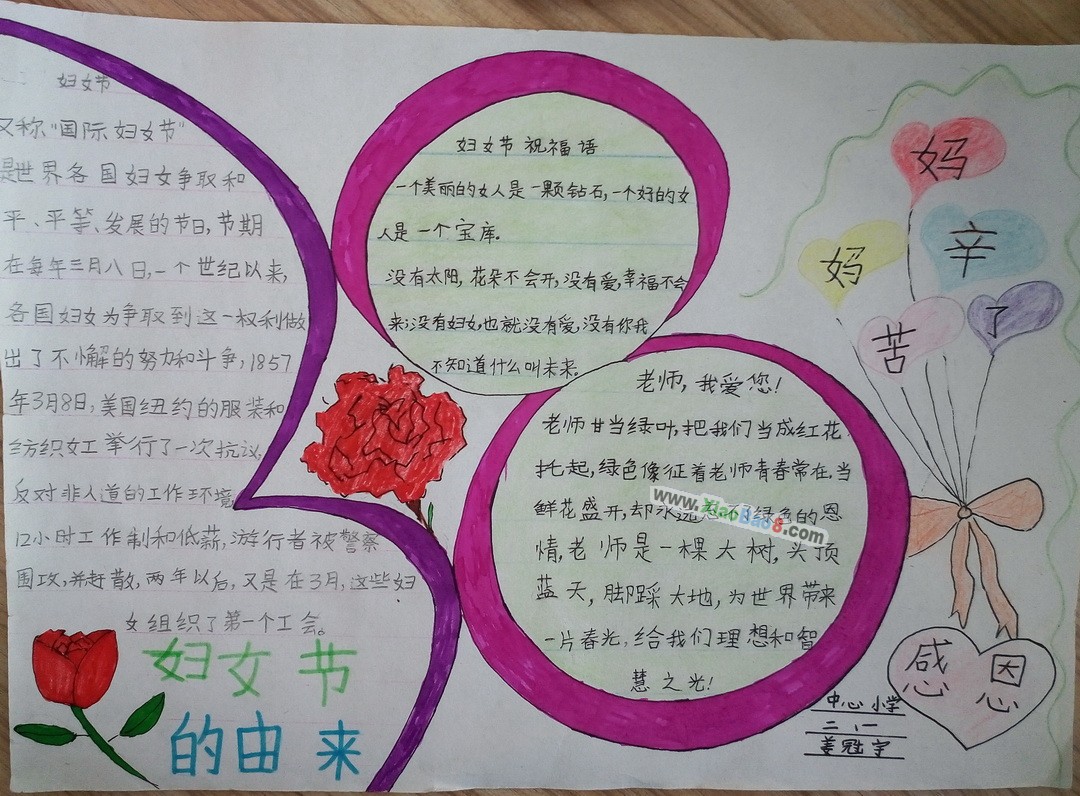 妇女节
又称"国际妇女节"
是世界各国妇女争取和
平、平等、发展的节日,节期
在每年三月八日,一个世纪以来,
各国妇女为争取到这一权利做
出了不懈的努力和斗争,1857
年3月8日,美国纽约的服装和
纺织女工举行了一次抗议,
反对非人道的工作环境
12小时工作制和低薪,游行者被警察
围攻,并赶散,两年以后,又是在3月,这些妇
女组织了第一个工会。
妇女节
的由来
妇女节祝福语
一个美丽的女人是一颗钻石,一个好的女
人是一个宝库。
没有太阳,花朵不会开,没有爱,幸福不会
来;没有妇女,也就没有爱,没有你我
不知道什么叫未来。
老师,我爱您!
老师甘当绿叶,把我们当成红花
托起,绿色像征着老师青春常在,当
鲜花盛开,却永远忘不绿色的恩
情,老师是一棵大树,头顶
蓝天,脚踩大地,为世界带来
一片春光,给我们理想和智
慧之光!
www.XiaoBao8.com
妈
妈
辛
苦
了
感恩
中心小学
二、一
姜冠宇